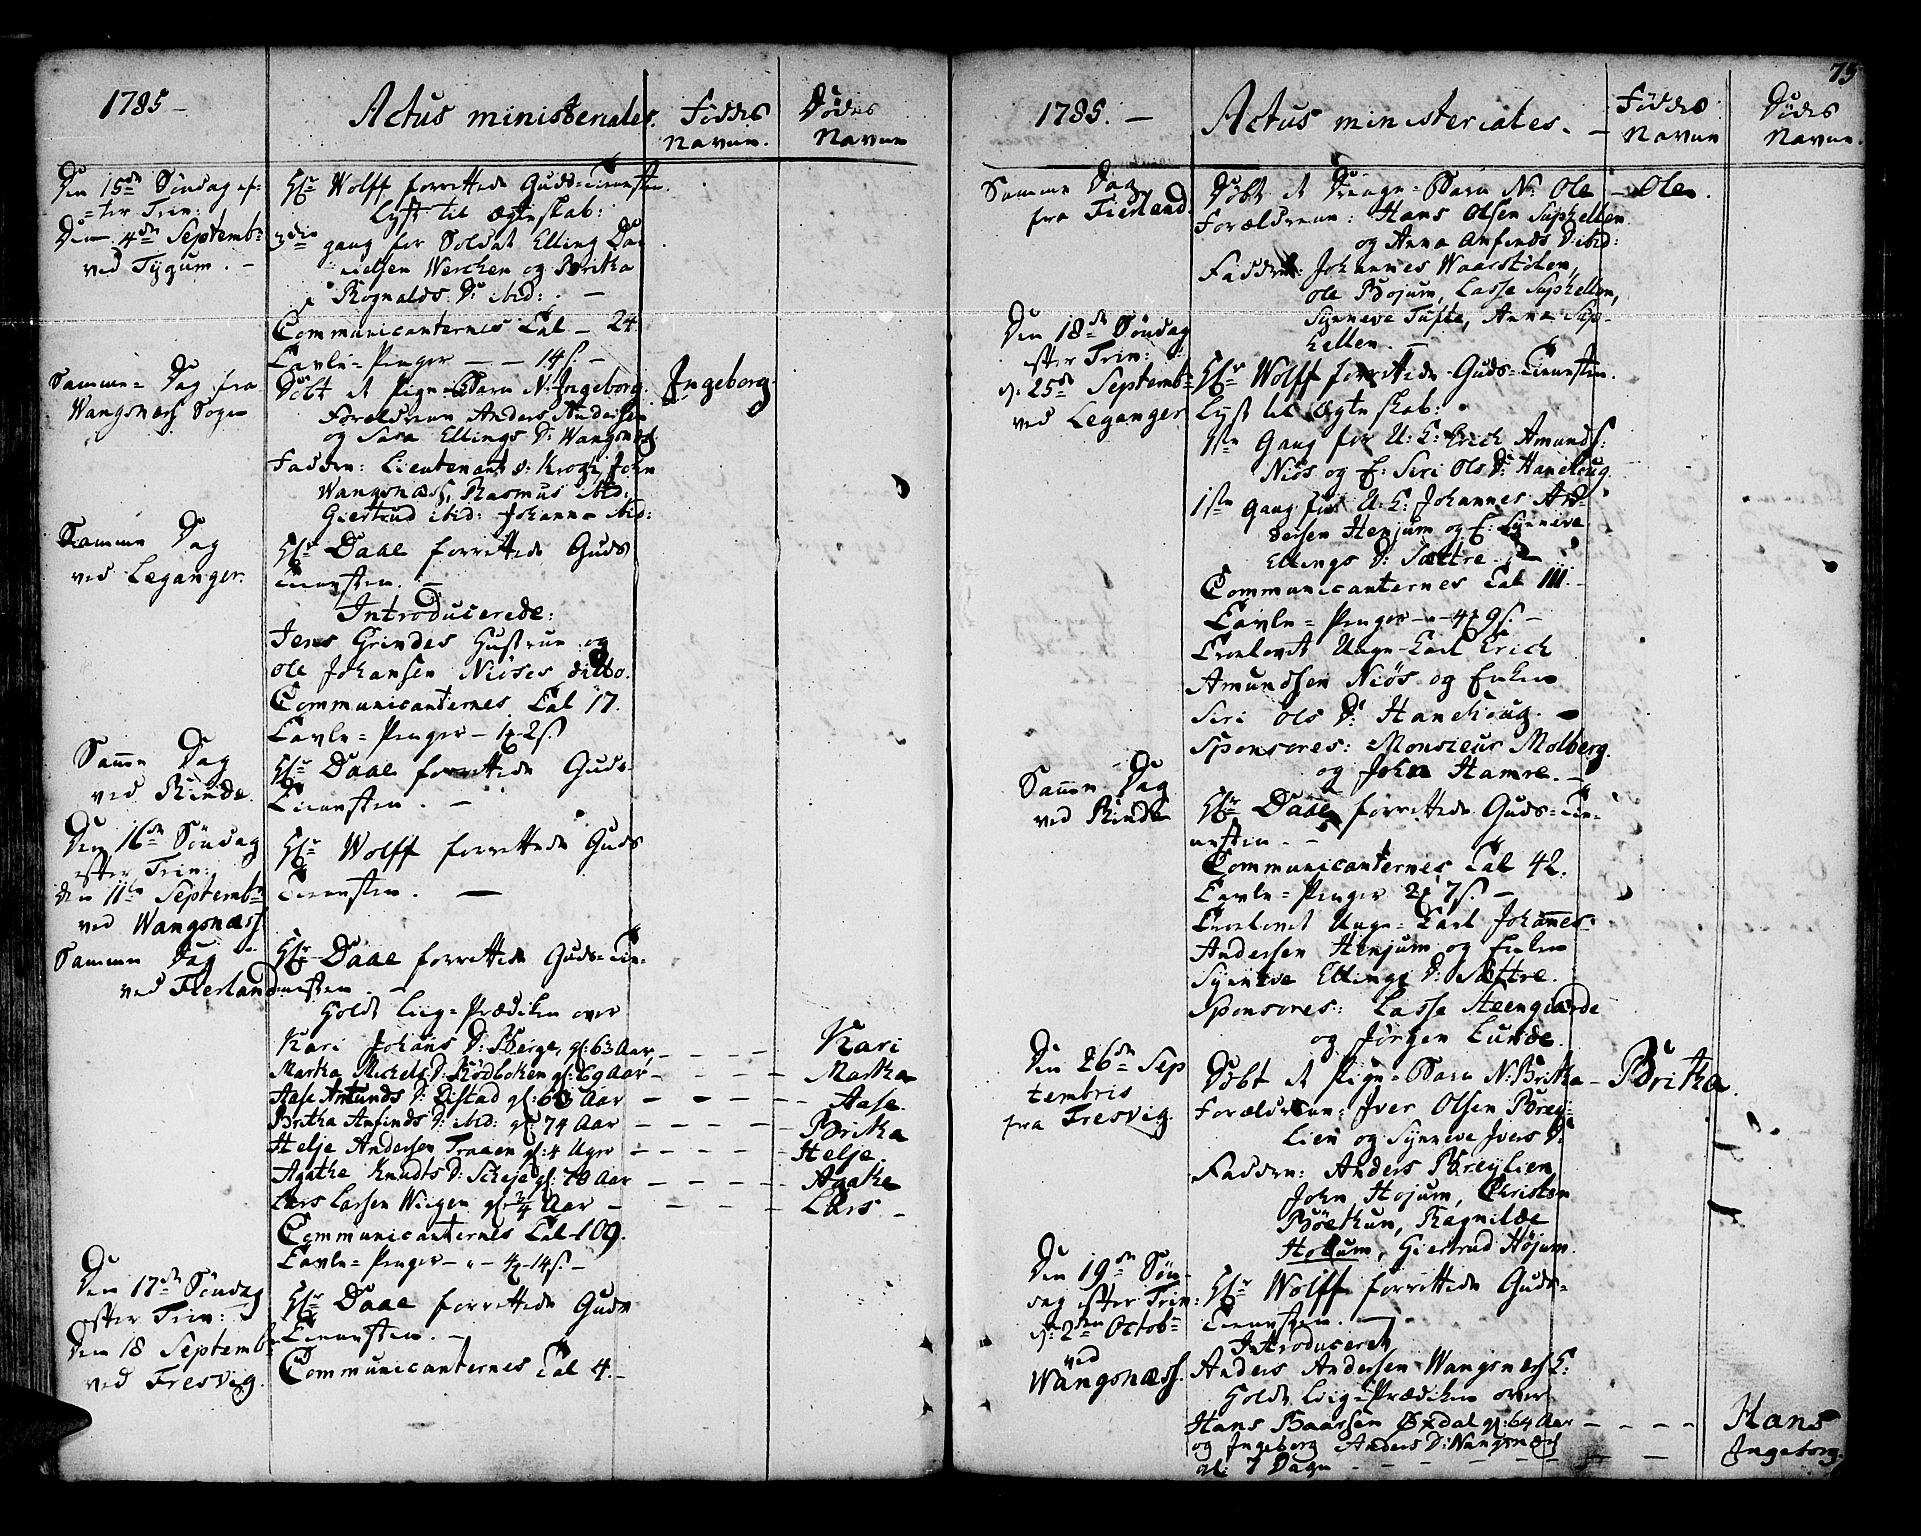 1785 –
Actus ministeriales.
Føddes Navne.
Dødes Navne
Den 15de Søndag ef=
=ter Trin:
Den 4de Septemb:
ved Tygum. –
Hr Wolff forrettede Guds-Tienesten.
Lyst til Ægteskab:
3die gang for Soldat Elling Da=
nielsen Werchen og Britha
Rognalds D: ibid: –
Communicanternes Tal – 24
Tavle=Penger – – 14 s. –
Samme Dag fra
Wangsness Sogn
Døbt et Pige-Barn N: Ingeborg. Ingeborg.
Forældrene Anders Andersen
og Sara Ellings D: Wangsness.
Faddere: Lieutenant v: Krogh, John
Wangsness, Rasmus ibid:
Giertrud ibid: Johanna ibid:
Samme Dag
ved Leganger.
Hr Daae forrettede Guds
Tienesten. –
Introducerede:
Jens Grindes Hustrue og
Ole Johansen Niøses ditto.
Communicanternes Tal 17.
Tavle=Penger – 1 2 s
Samme Dag
ved Rinde.
Hr Daae forrettede Guds-
Tienesten. –
Den 16de Søndag
efter Trin:
den 11te Septemb:
ved Wangsness
Hr Wolff forrettede Guds
Tienesten. –
Samme Dag
ved Fierland
Hr Daae forrettede Guds=Tie=
nesten. –
Holdt Liig=Prædiken over
Kari Johans D: Berge, gl: 63 Aar, – – – Kari
Martha Michels D: Rødboken gl: 69 Aar – – – Martha
Aase Amunds D: Distad gl: 63 Aar – – – Aase.
Britha Anfinds D: ibid: gl: 74 Aar – – – Britha
Helje Andersen Traaen gl: 4 Uger – – – Helje.
Agathe Knudts D: Skeje gl: 70 Aar – – – Agathe
Lars Larsen Wiigen gl: 2/4 Aar – – – Lars –
Communicanternes Tal 109.
Tavle=Penger – " – 4 14 s. –
Den 17de Søndag
efter Trin:
Den 18 Septemb:
ved Fresvig.
Hr Daae forrettede Guds
Tienesten. –
Communicanternes Tal 4. –
75
1785. –
Actus ministeriales. –
Føddes Navne
Dødes Navne.
Samme Dag
fra Fierland.
Døbt et Drenge-Barn N: Ole – Ole.
Forældrene: Hans Olsen Suphellen
og Anna Anfinds D: ibid:
Faddere: Johannes Waarstølen,
Ole Bojum, Lasse Suphellen,
Synneve Tufte, Anna Sup=
hellen. –
Den 18de Søndag
efter Trin:
d: 25de Septemb:
ved Leganger
Hr Wolff forrettede Guds=Tienesten.
Lyst til Ægteskab:
1ste Gang for U: K: Erich Amunds:
Niøs og E: Siri Ols D: Hanehoug.
1ste Gang for U: K: Johannes An=
dersen Henjum og E: Synneve
Ellings D: Sættre. –
Communicanternes Tal 111. –
Tavle=Penger – " – 4 9 s. –
Trolovet Unge-Karl Erich
Amundsen Niøs og Enken
Siri Ols D: Hanehoug. –
Sponsores: Monsieur Molberg.
og John Hamre. –
Samme Dag
ved Rinde
Hr Daae forrettede Guds=Tie=
nesten. –
Communicanternes Tal 42.
Tavle=Penger 2 7 s. –
Trolovet Unge-Karl Johannes
Andersen Henjum og Enken
Synneve Ellings D: Sættre.
Sponsores: Lasse Steengierde
og Jørgen Lunde.
Den 26de Sep
tembris
fra Fresvig.
Døbt et Pige-Barn N: Britha – Britha
Forældrene: Iver Olsen Brey=
lien og Synneve Ivers D:
Faddere: Anders Breylien,
John Hojum, Christen
Bøethun, Ragnilde
Hojum, Giertrud Højum.
Den 19de Søn=
dag efter Trin:
d: 2den Octob:
ved
Wangsness.
Hr Wolff forrettede Guds-
Tienesten. –
Introduceret
Anders Andersen Wangsness K:
Holdt Liig=Prædiken over
Hans Baarsen Øxdal gl: 64 Aar – – – – Hans
og Ingeborg Anders D: Wangsness – – Ingeborg.
gl: 7 Dage – – – – –